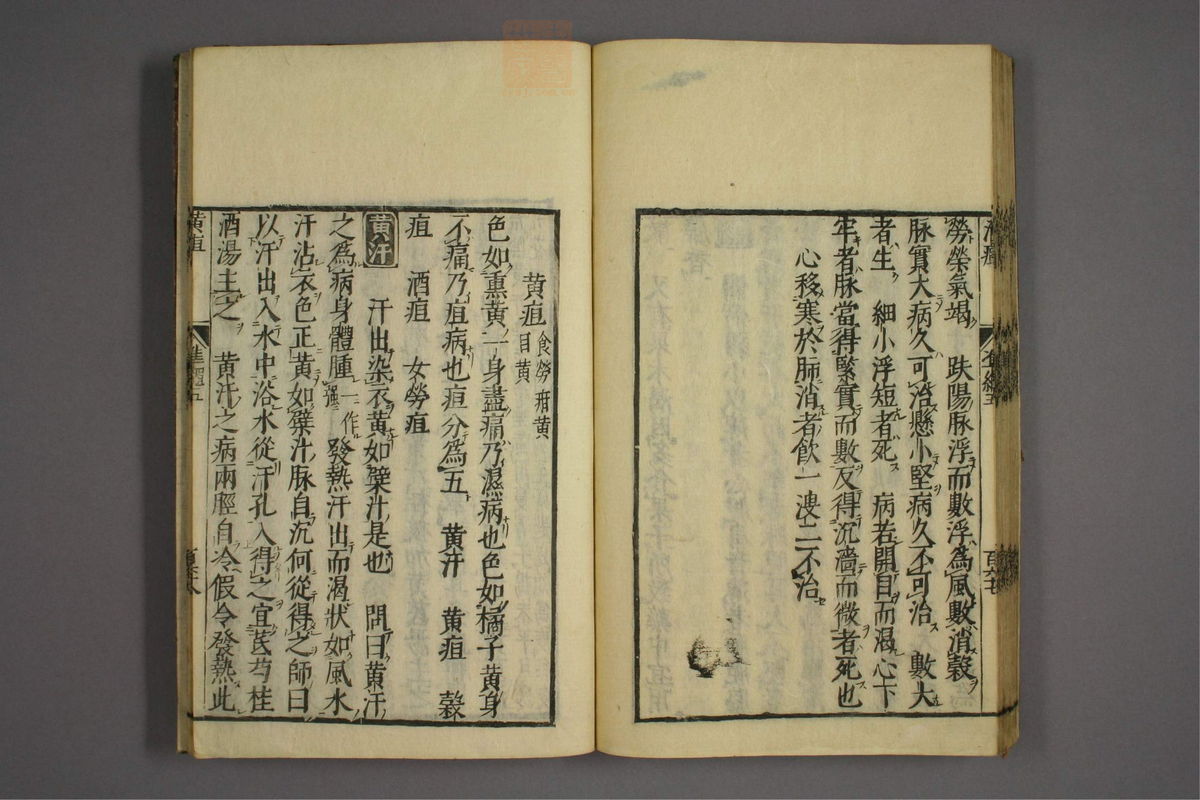 勞榮氣竭　趺陽脉浮而數浮為風數消穀
脉實大病久可治懸小堅病久不可治　數大
者生　細小浮短者死　病若開目而渴心下
牢者脉當得緊實而數反得沉濇而微者死也
心移寒於肺消者飲一溲二不治
百六七
黄疸 食勞疳黄 目黄
色如熏黄一身盡痛乃濕病也色如橘子黄身
不痛乃疸病也疸分為五　黄汗　黄疸　穀
疸　酒疸　女勞疸
黄汗　汗出染衣黄如蘗汁是也　問曰黄汗
之為病身體腫 一作重 發熱汗出而渴狀如風水
汗沾衣色正黄如蘗汁脉自沉何從得之師曰
以汗出入水中浴水從汗孔入得之宜芪芍桂
酒湯主之　黄汗之病兩脛自冷假令發熱此
黄疸
百六八